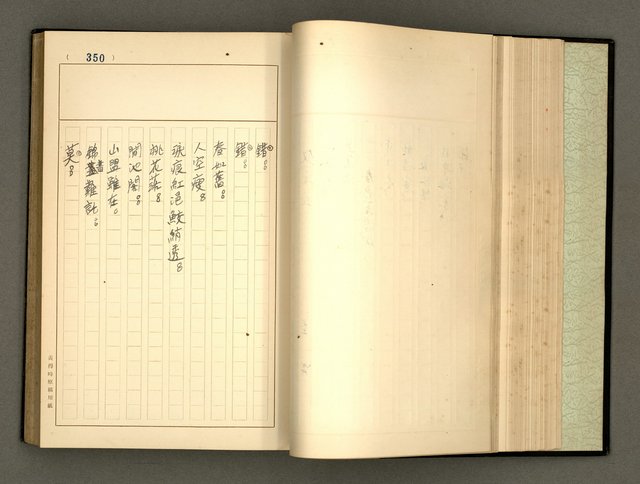 ( 350 )
錯。
錯。
春如舊。
人空瘦。
淚痕紅浥鮫綃透。
桃花落。
閒池閣。
山盟雖在。
錦書難託。
莫。
黃得時原稿用紙